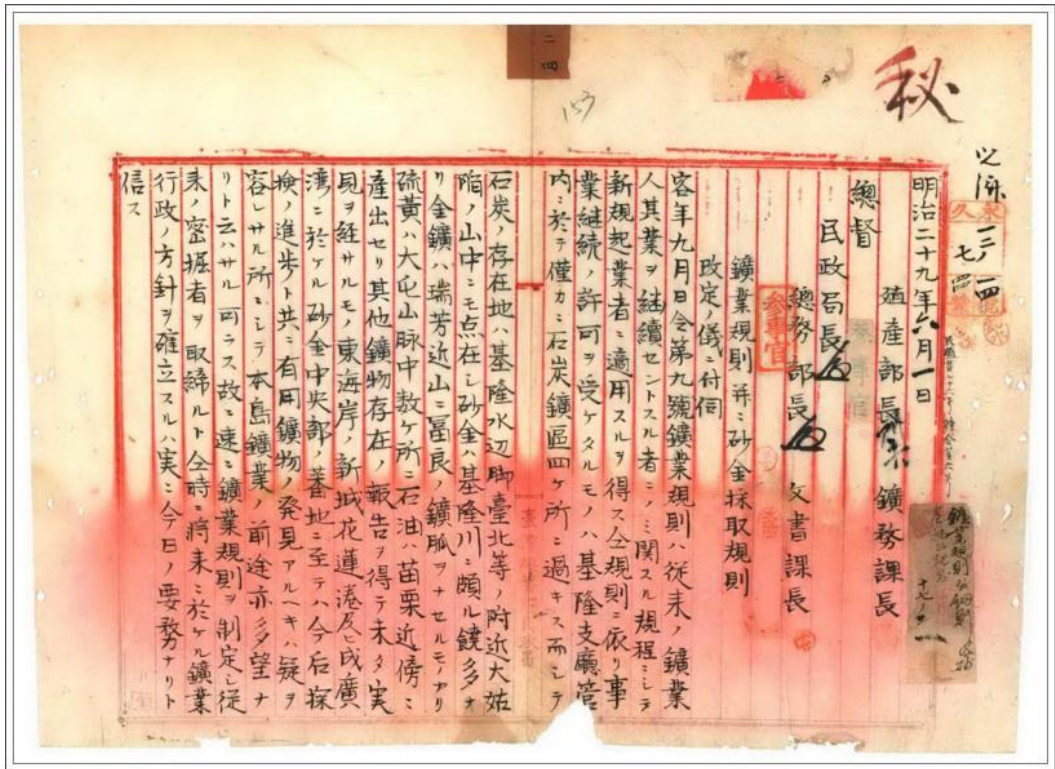 秘
二四
153
永久
七
明治二十九年六月一日
殖産部長 鑛務課長
總督
民政局長
總務部長 文書課長
参事官
鑛業規則并ニ砂金採取規則
改定ノ儀ニ付伺
客年九月日令第九號鑛業規則ハ従来ノ鑛業
人其業ヲ継續セントスル者ニノミ関スル規程ニシテ
新規起業者ニ適用スルヲ得ス仝規則ニ依リ事
業継続ノ許可ヲ受ケタルモノハ基隆支廳管
内ニ於テ僅カニ石炭鑛區四ケ所ニ過キス而シテ
石炭ノ存在地ハ基隆水辺脚臺北等ノ附近大姑
陷ノ山中ニモ点在シ砂金ハ基隆川ニ頗ル饒多ナ
リ金鑛ハ瑞芳近山ニ冨良ノ鑛脈ヲナセルモノアリ
硫黄ハ大屯山脉中数ケ所ニ石油ハ苗栗近傍ニ
産出セリ其他鑛物存在ノ報告ヲ得テ未タ実
見ヲ経サルモノ東海岸ノ新城花蓮港及ヒ成廣
澳ニ於ケル砂金中央部ノ蕃地ニ至テハ今后探
検ノ進歩ト共ニ有用鑛物ノ発見アルヘキハ疑ヲ
容レサル所ニシテ本島鑛業ノ前途亦多望ナ
リト云ハサル可ラス故ニ速ニ鑛業規則ヲ制定シ従
来ノ密掘者ヲ取締ルト仝時ニ将来ニ於ケル鑛業
行政ノ方針ヲ確立スルハ実ニ今日ノ要務ナリト
信ス